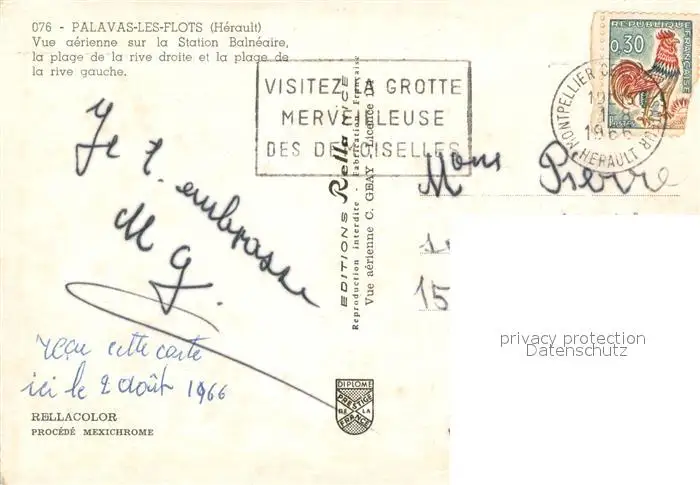 076 - PALAVAS-LES-FLOTS (Hérault)
Vue aérienne sur la Station Balnéaire,
la plage de la rive droite et la plage de
la rive gauche.
VISITEZ LA GROTTE
MERVEILLEUSE
DES DEMOISELLES
REPUBLIQUE FRANÇAISE
0,30
Postes
MONTPELLIER
HERAULT
1966
Je t. embrasse
M G.
reçu cette carte
ici le 2 août 1966
RELLACOLOR
PROCÉDÉ MEXICHROME
EDITIONS Rella NICE
Reproduction interdite - Fabrication Française
Vue aérienne C. GRAY - Licence
DIPLOME
PRESTIGE
DE LA
FRANCE
Mons Pierre
15
privacy protection
Datenschutz